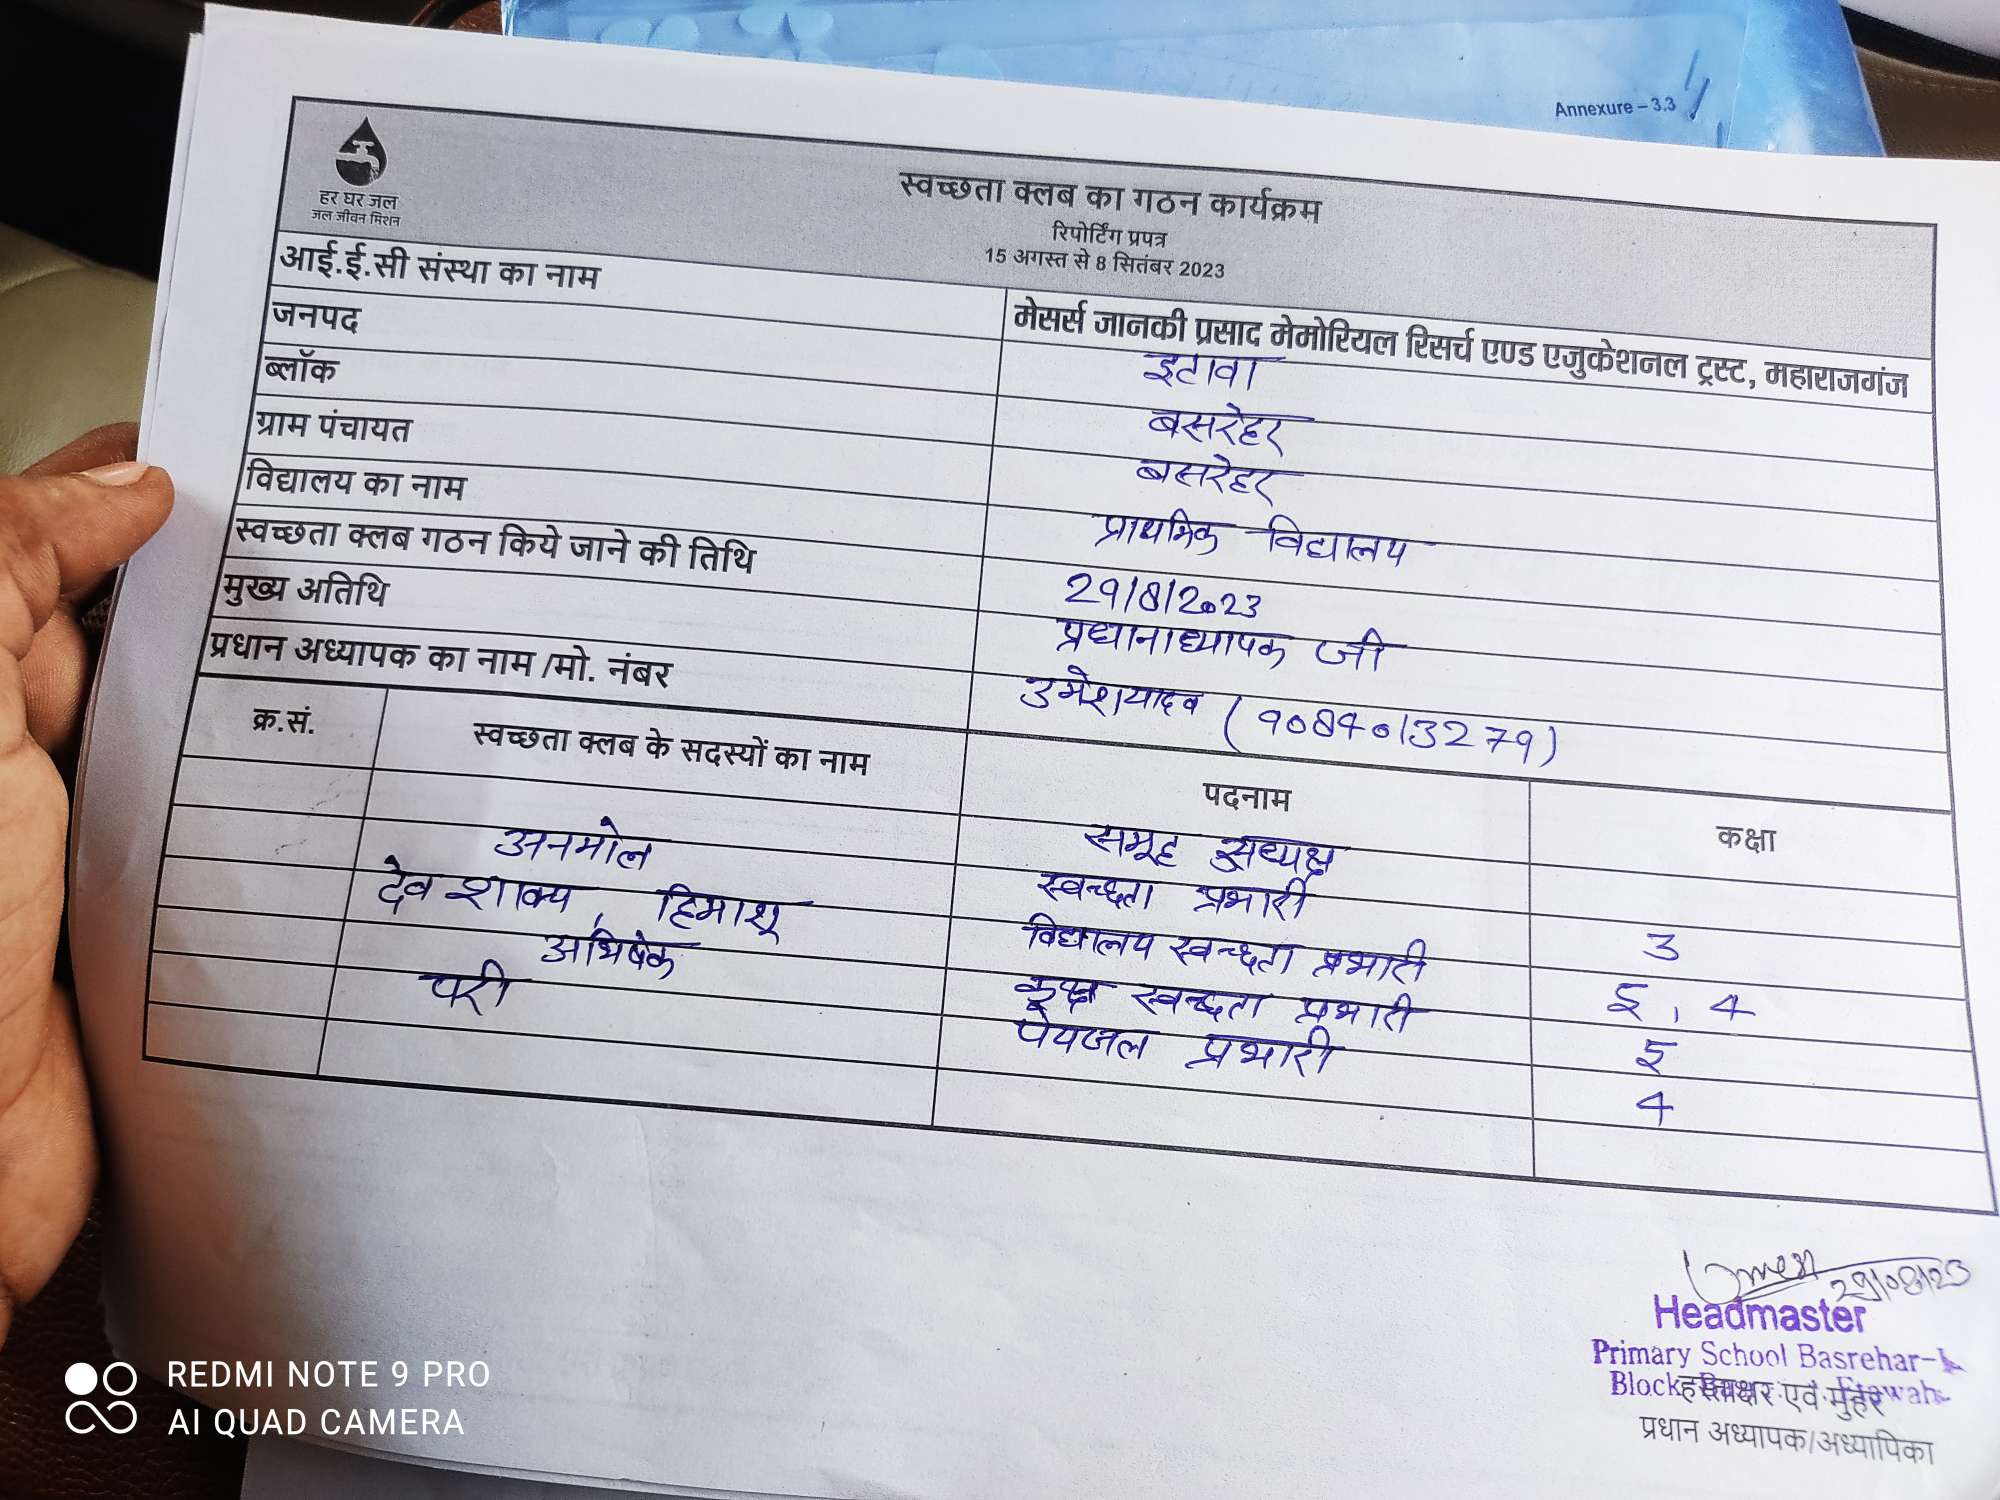 Annexure – 3.3
हर घर जल
जल जीवन मिशन
स्वच्छता क्लब का गठन कार्यक्रम
रिपोर्टिंग प्रपत्र
15 अगस्त से 8 सितंबर 2023
आई.ई.सी संस्था का नाम मेसर्स जानकी प्रसाद मेमोरियल रिसर्च एण्ड एजुकेशनल ट्रस्ट, महाराजगंज
जनपद इटावा
ब्लॉक बसरेहर
ग्राम पंचायत बसरेहर
विद्यालय का नाम प्राथमिक विद्यालय
स्वच्छता क्लब गठन किये जाने की तिथि 29/8/2023
मुख्य अतिथि प्रधानाध्यापक जी
प्रधान अध्यापक का नाम /मो. नंबर उमेश यादव (9084013279)
क्र.सं. स्वच्छता क्लब के सदस्यों का नाम पदनाम कक्षा
अनमोल समूह अध्यक्ष 3
देव शाक्य, हिमाशू स्वच्छता प्रभारी 5, 4
अभिषेक विद्यालय स्वच्छता प्रभारी 5
परी कक्षा स्वच्छता प्रभारी 4
पेयजल प्रभारी
Umesh 29/08/23
Headmaster
Primary School Basrehar-
Block Etawah
हस्ताक्षर एवं मुहर
प्रधान अध्यापक/अध्यापिका
REDMI NOTE 9 PRO
AI QUAD CAMERA